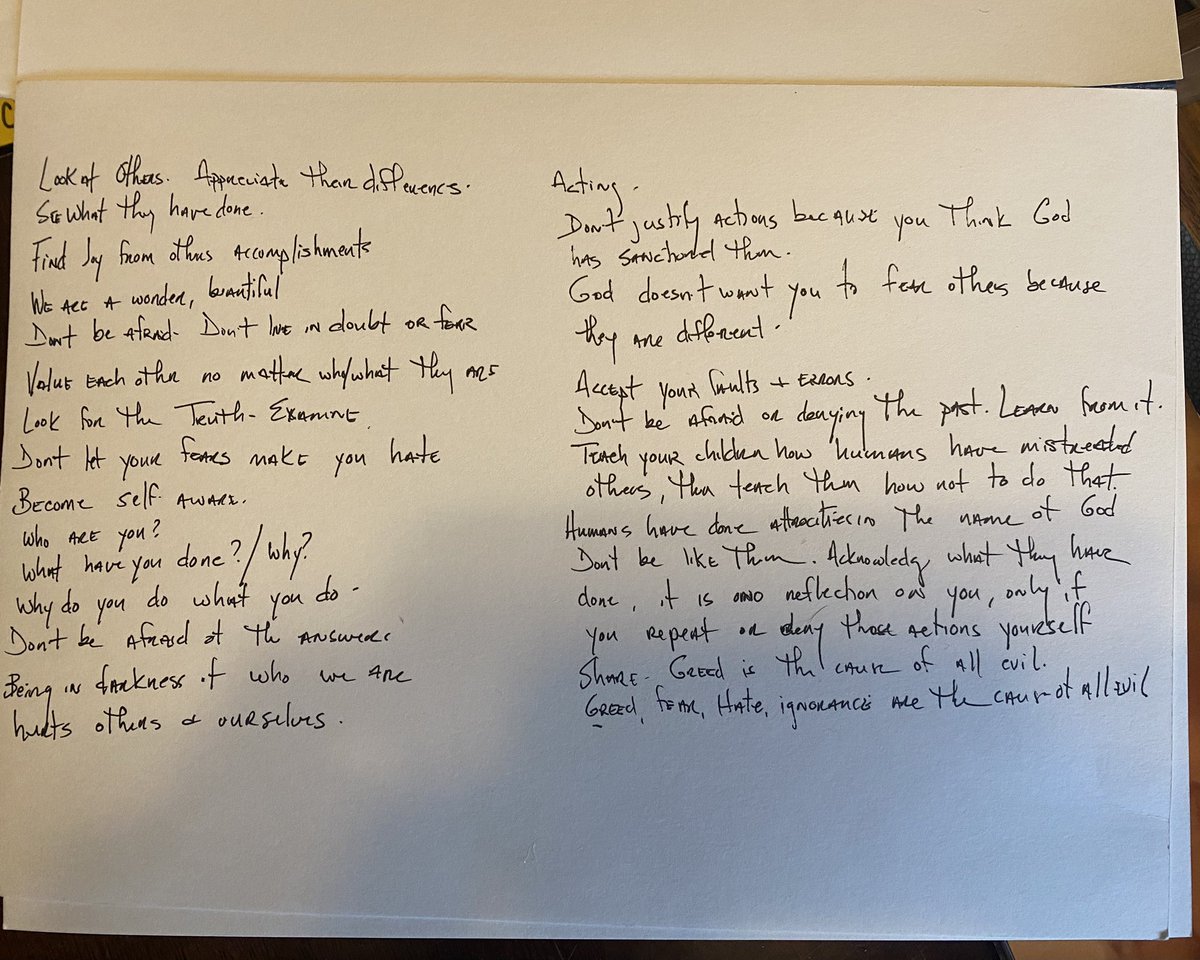 C
Look at Others. Appreciate their differences.
See what they have done.
Find Joy from others accomplishments
We are a wonder, beautiful
Dont be afraid. Don't live in doubt or fear
Value each other no matter who/what they are
Look for the Truth - Examine
Dont let your fears make you hate
Become self aware.
Who are you?
What have you done? / Why?
Why do you do what you do -
Don't be afraid at the answers
Being in darkness of who we are
hurts others & ourselves.
Acting.
Don't justify actions because you Think God
has sanctioned them.
God doesn't want you to fear others because
they are different.
Accept your faults + errors.
Don't be afraid or denying the past. Learn from it.
Teach your children how humans have mistreated
others, then teach them how not to do that.
Humans have done attrocities in the name of God
Don't be like Them. Acknowledge what they have
done, it is no reflection on you, only if
you repeat or deny those actions yourself
Share - Greed is the cause of all evil.
Greed, Fear, Hate, ignorance are the cause of all evil